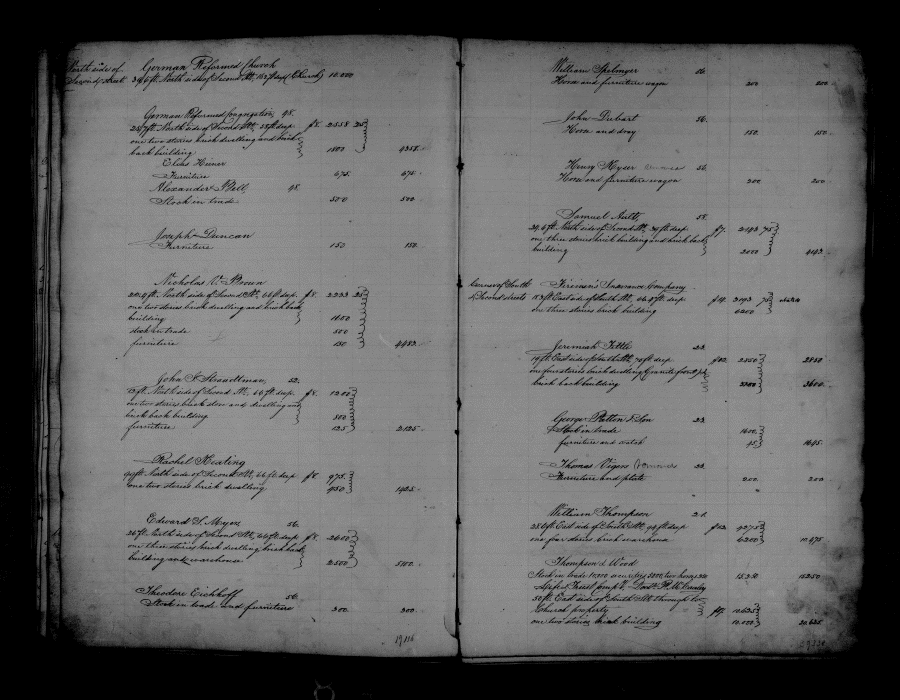 North side of German Reformed Church
Second street 34/6 ft. North side of Second St. 157 ft deep (Church) 10.000
German Reformed Congregation, 48.
25/7 ft. North side of Second St., 55 ft deep f8. 2558 25
one two stories brick dwelling and brick
back building 1800 4358.
Elias Heiner
Furniture 675. 675.
Alexander Bell 48.
Stock in trade 500 500
Joseph Duncan
Furniture 150 150.
Nicholas V. Brown
20.4 ft. North side of Second St., 66 ft deep. f8. 2233 25
one two stories brick dwelling and brick back
building 1600
stock in trade 500
furniture 150 4483.
John F. Strandtman, 52.
12 ft. North side of Second St., 66 ft deep. f8. 1200
one two stories brick store and dwelling and
brick back building 800
furniture 125 2125.
Rachel Keating
9.9 ft. North side of Second St., 66 ft deep f8. 975
one two stories brick dwelling 450 1425.
Edward S. Myers 56.
26 ft. North side of Second St., 66 ft deep f8. 2600
one three stories brick dwelling brick back
building and warehouse 2500 5100.
Theodore Eichhoff 56.
Stock in trade and furniture 300 300.
19116
William Spilmyer 56.
Horse and furniture wagon 200 200.
John Diebart 56.
Horse and dray 150. 150.
Henry Meyer 56
Horse and furniture wagon 200 200.
Samuel Ault 58.
29.6 ft. North side of Second St., 39 ft deep f7. 2143 75
one three stories brick building and brick back
building 2000 4143.
Corner of South Firemen's Insurance Company
& Second streets 18.3 ft East side of South St., 66.8 ft deep f14. 3193 75
one three stories brick building 6200
Jeremiah Tittle 23.
19 ft. East side of South St., 70 ft deep f12. 2850 2850
one four stories brick dwelling (granite front) &
brick back building 3600.
George Patten & Son 23
Stock in trade 1600
furniture and watch 45 1645.
Thomas Vigers 23.
Furniture and plate 200 200
William Thompson 21.
East side of South St., 94 ft deep f12. 4275
one four stories brick warehouse 6200 10.475
Thompson & Wood
15.250 15250
50 ft. East side of South St. through to
Church property f7. 10.625
one two stories brick building 10.000 20.625